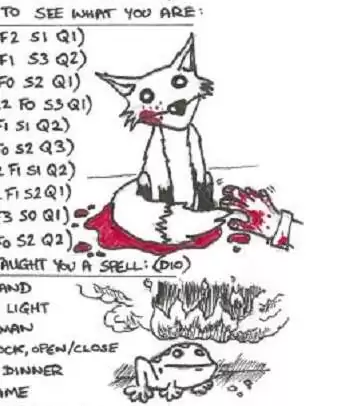 TO SEE WHAT YOU ARE:
F2 S1 Q1)
F1 S3 Q2)
F0 S2 Q1)
2 F0 S3 Q1)
F1 S1 Q2)
F0 S2 Q3)
F1 S1 Q2)
F1 S2 Q1)
F3 S0 Q1)
F0 S2 Q2)
AUGHT YOU A SPELL: (D10)
AND
LIGHT
MAN
OCK, OPEN/CLOSE
DINNER
AME